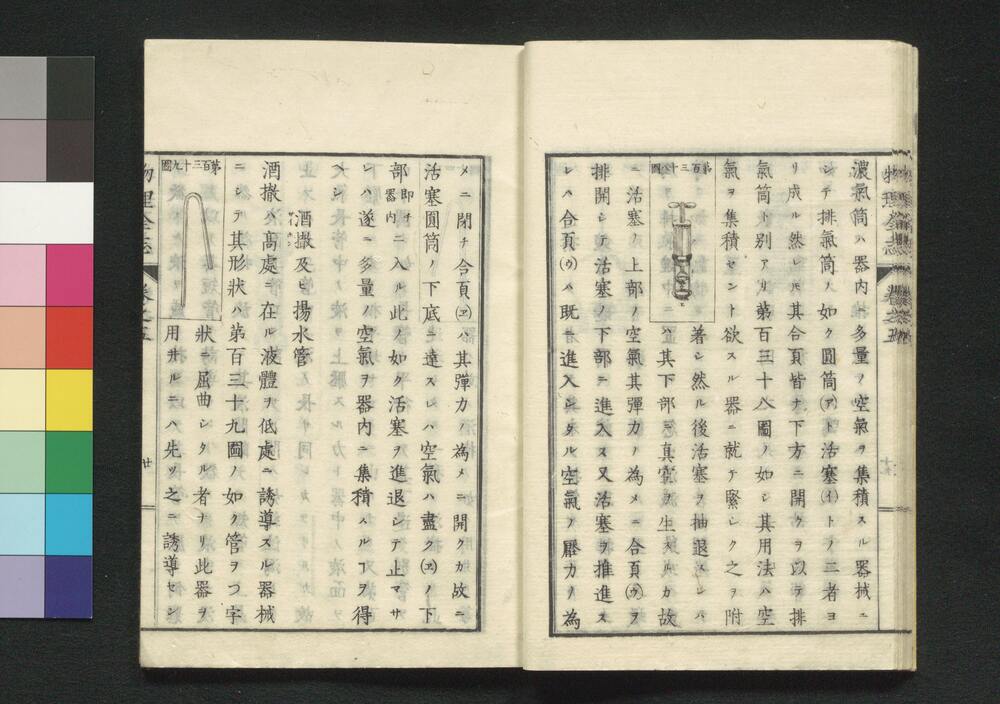 濃氣筒ハ器内ニ多量ノ空氣ヲ集積スル器械ニ
シテ排氣筒ノ如ク圓筒㋐ト活塞㋑トノ二者ヨ
リ成ル然レ𪜈其合頁皆ナ下方ニ開クヲ以テ排
氣筒ト別アリ第百三十八圖ノ如シ其用法ハ空
氣ヲ集積セント欲スル器ニ就テ緊シク之ヲ附
第百三十八圖
着シ然ル後活塞ヲ抽退スレバ
ハ其下部ニ真空ヲ生スルカ故
ニ活塞ノ上部ノ空氣其彈力ノ為メニ合頁㋒ヲ
排開シテ活塞ノ下部ニ進入ス又活塞ヲ推進ス
レハ合頁㋒ハ既ニ進入シタル空氣ノ壓力ノ為
物理全志
卷之五
メニ閉チ合頁㋓ハ其彈力ノ為メニ開クカ故ニ
活塞圓筒ノ下底ニ達スレハ空氣ハ盡ク㋓ノ下
部即チ器内ニ入ル此ノ如ク活塞ヲ進退シテ止マサ
レハ遂ニ多量ノ空氣ヲ器内ニ集積スルヿヲ得
ヘシ
酒撒及ヒ揚水管
酒撒ハ髙處ニ在ル液體ヲ低處ニ誘導スル器械
ニシテ其形狀ハ第百三十九圖ノ如ク管ヲつ字
第百三十九圖
狀ニ屈曲シタル者ナリ此器ヲ
用井ルニハ先ツ之ニ誘導セン
物理全志
卷之五
廿